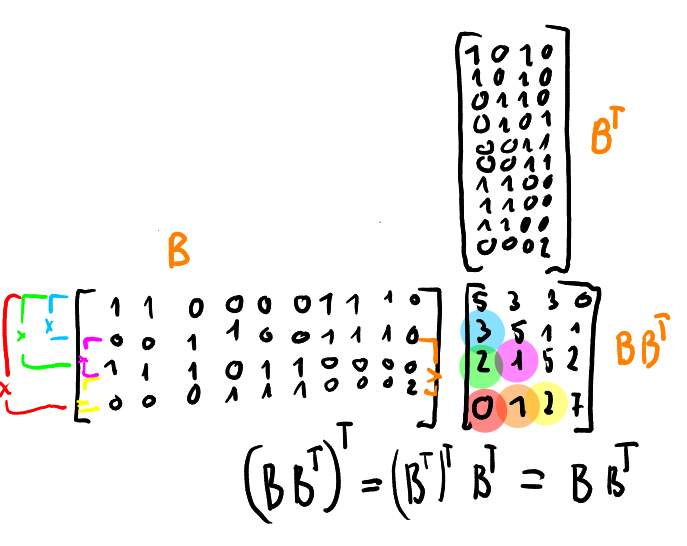 1 0 1 0
1 0 1 0
0 1 1 0
0 1 0 1
0 0 1 1
0 0 1 1
1 1 0 0
1 1 0 0
1 1 0 0
0 0 0 2
B^T
B
1 1 0 0 0 0 1 1 1 0
0 0 1 1 0 0 1 1 1 0
1 1 1 0 1 1 0 0 0 0
0 0 0 1 1 1 0 0 0 2
5 3 3 0
3 5 1 1
2 1 5 2
0 1 2 7
B B^T
(B B^T)^T = (B^T)^T B^T = B B^T